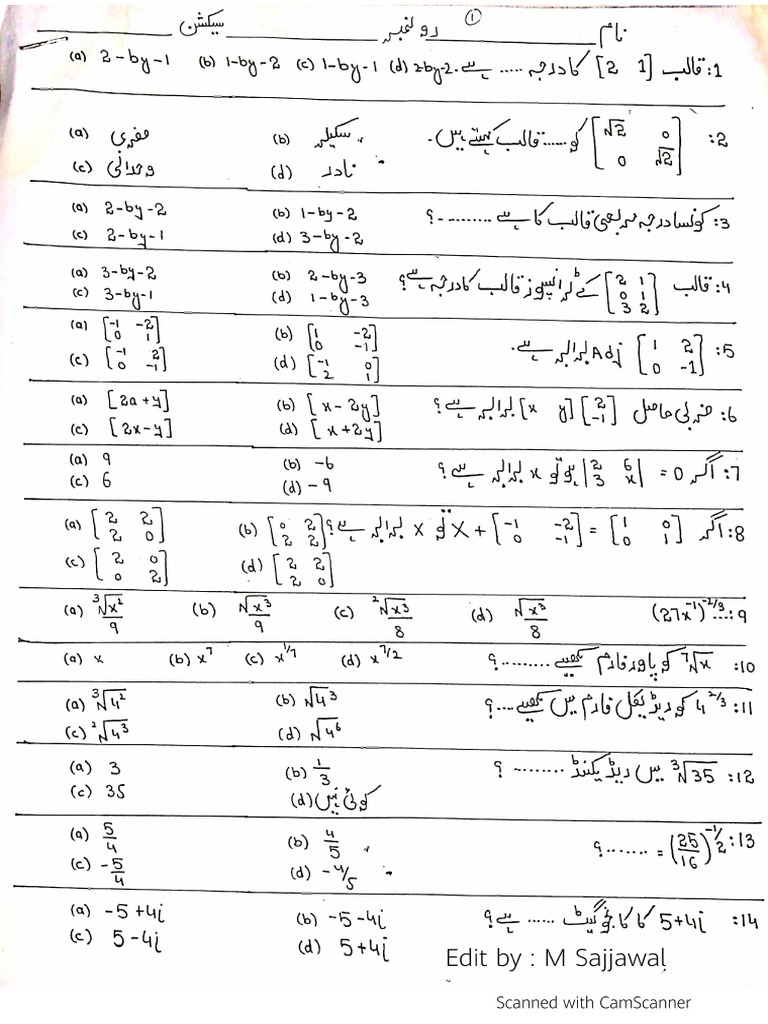 ①
نام ____________ رولنمبر ____________ سیکشن ____________
1: قالب [2 1] کا درجہ ..... ہے۔ (a) 2-by-1 (b) 1-by-2 (c) 1-by-1 (d) 2-by-2
2: [√2 0; 0 √2] کو ...... قالب کہتے ہیں۔
(a) صفری (b) سکیلر
(c) وحدانی (d) نادر
3: کونسا درجہ مربعی قالب کا ہے ......... ؟
(a) 2-by-2 (b) 1-by-2
(c) 2-by-1 (d) 3-by-2
4: قالب [2 1; 0 1; 3 2] کے ٹرانسپوز قالب کا درجہ ہے؟
(a) 3-by-2 (b) 2-by-3
(c) 3-by-1 (d) 1-by-3
5: Adj [1 2; 0 -1] برابر ہے۔
(a) [-1 -2; 0 1] (b) [1 -2; 0 -1]
(c) [-1 2; 0 -1] (d) [-1 0; 2 1]
6: ضربی حاصل [x y][2; -1] برابر ہے؟
(a) [2a+y] (b) [x-2y]
(c) [2x-y] (d) [x+2y]
7: اگر |2 6; 3 x| = 0 ہو تو x برابر ہے؟
(a) 9 (b) -6
(c) 6 (d) -9
8: اگر X + [-1 -2; 0 -1] = [1 0; 0 1] تو X برابر ہے؟
(a) [2 2; 2 0] (b) [0 2; 2 2]
(c) [2 0; 0 2] (d) [2 2; 2 0]
9: (27x⁻¹)^(-2/3)... (a) ∛x²/9 (b) √x³/9 (c) ²√x³/8 (d) √x³/8
10: ⁷√x کو پاور فارم لکھیے ......... ؟
(a) x (b) x⁷ (c) x^(1/7) (d) x^(7/2)
11: 4^(2/3) کو ریڈیکل فارم میں لکھیے .... ؟
(a) ∛4² (b) √4³
(c) ²√4³ (d) √4⁶
12: ∛35 میں ریڈیکنڈ ........ ؟
(a) 3 (b) 1/3
(c) 35 (d) کوئی نہیں
13: (25/16)^(-1/2) = ....... ؟
(a) 5/4 (b) 4/5
(c) -5/4 (d) -4/5
14: 5+4i کا کانجوگیٹ ...... ہے؟
(a) -5+4i (b) -5-4i
(c) 5-4i (d) 5+4i
Edit by : M Sajjawal
Scanned with CamScanner